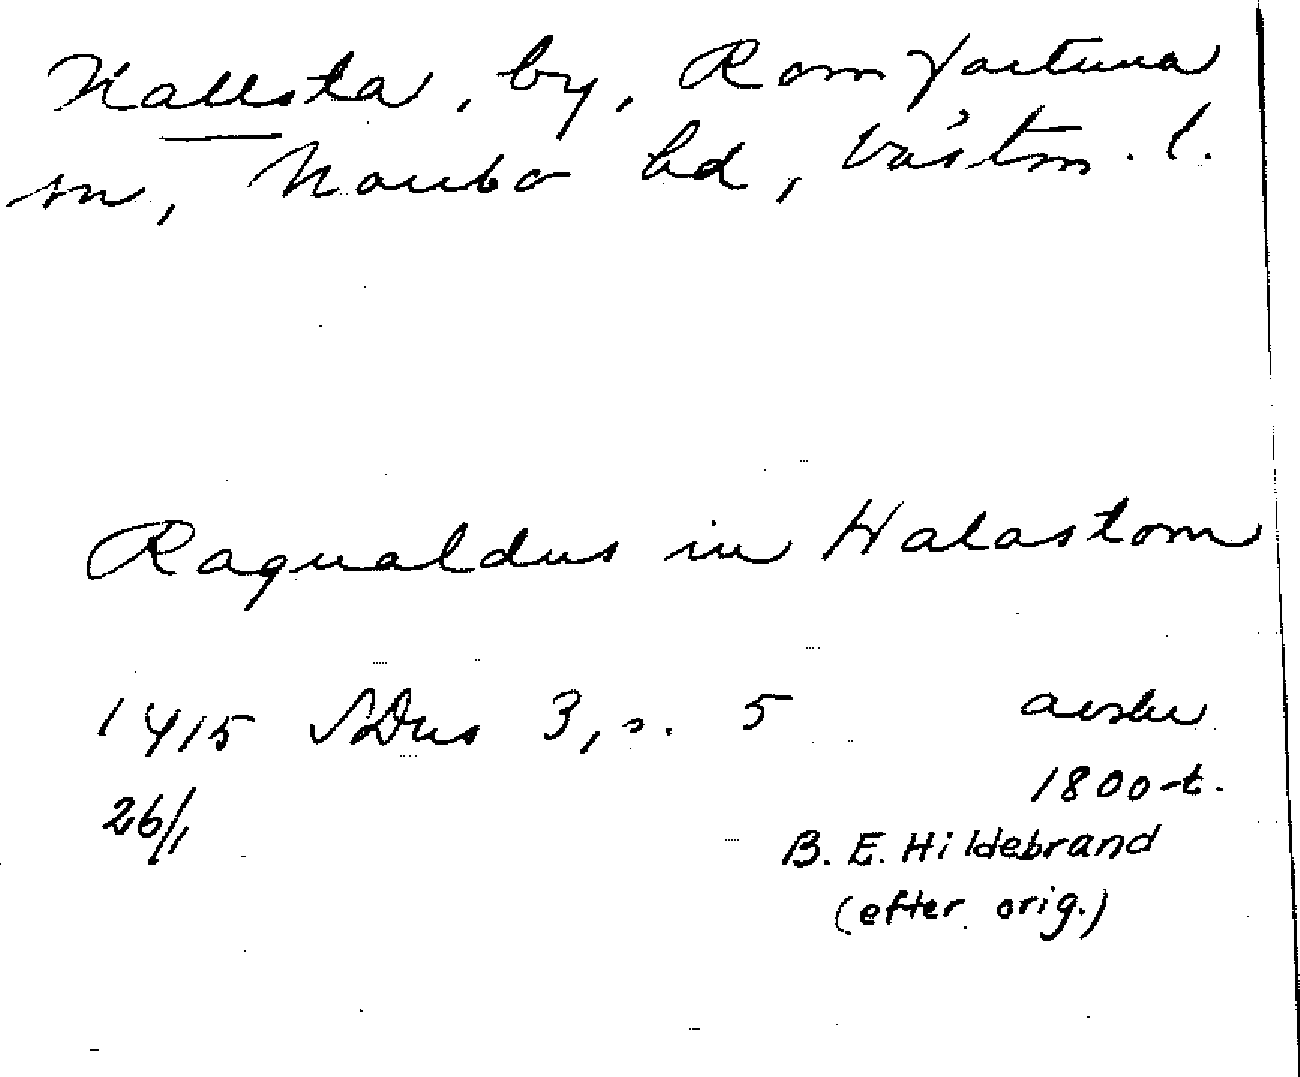 Hallsta, by, Romfartuna
sn, Norrbo hd, Västm. l.
Ragualdus in Halastom
1415 SDns 3, s. 5 avskr
26/1 1800-t.
B. E. Hildebrand
(efter orig.)